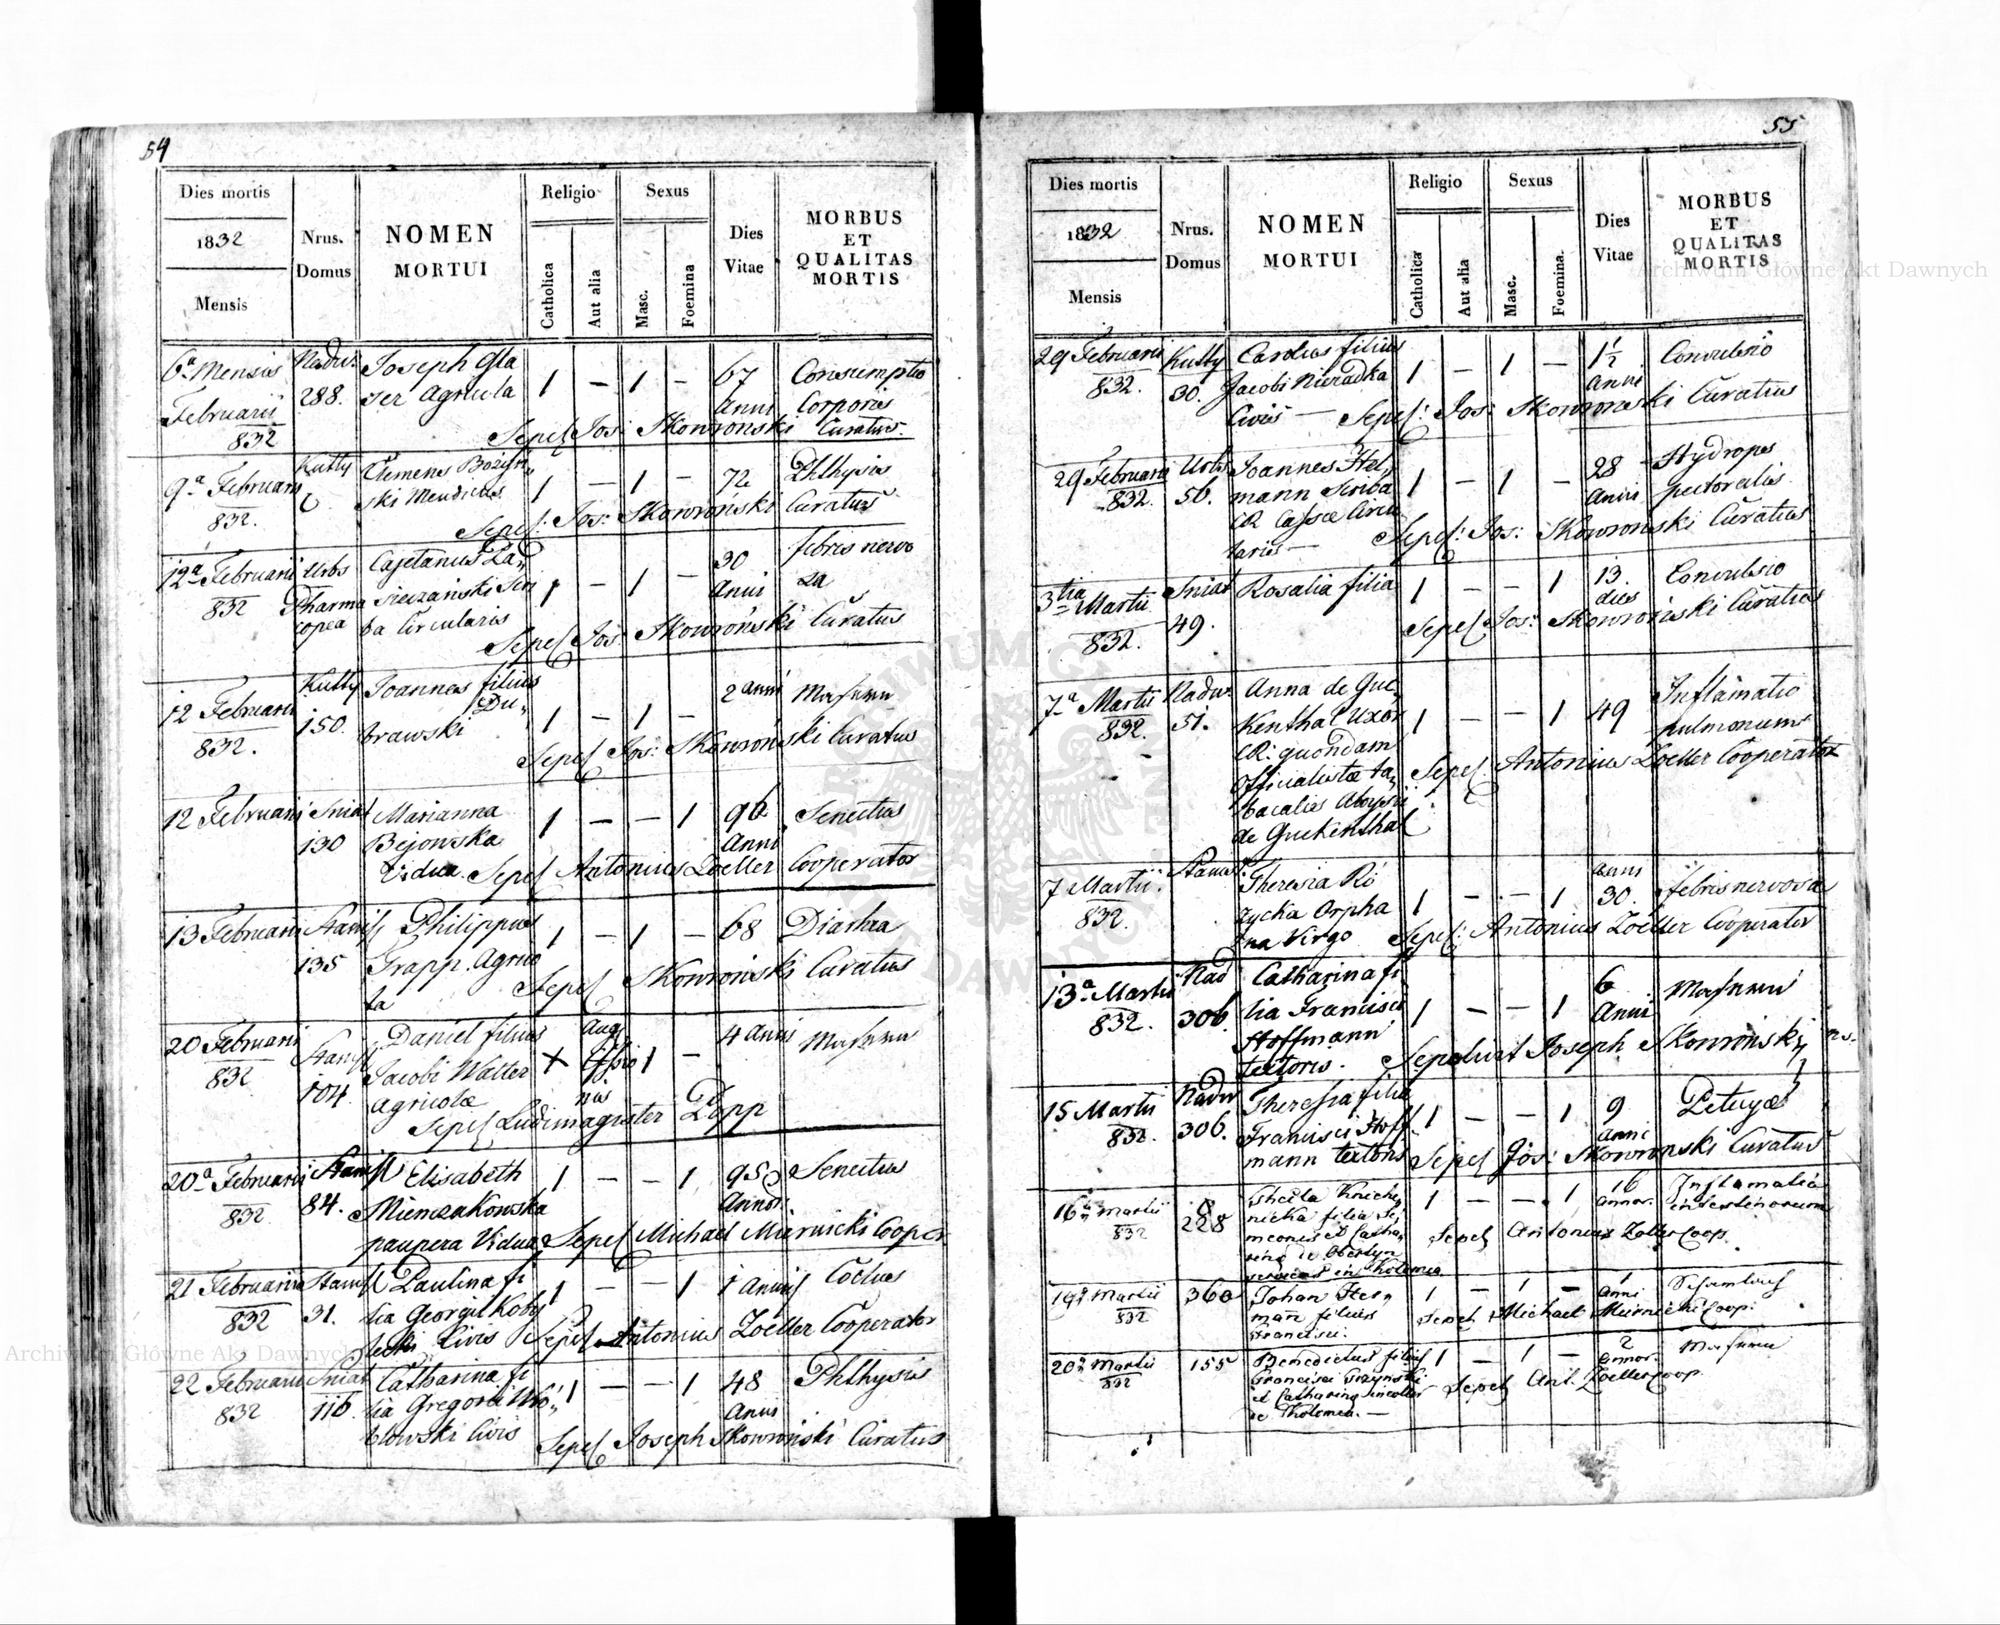 54
Dies mortis
1832
Mensis
Nrus.
Domus
NOMEN
MORTUI
Religio
Catholica
Aut alia
Sexus
Masc.
Foemina
Dies
Vitae
MORBUS
ET
QUALITAS
MORTIS
6a Mensis
Februarii
832
288.
Joseph Gla
ser Agricola
1 — 1 —
67
Anni
Consumptio
Corporis
Sepel Jos: Skowroński Curatus.
9a Februarii
832.
Kutty
Clemens
ski Mendicus
1 — 1 —
72
Phthysis
Sepel: Jos: Skowroński Curatus
12a Februarii
832
Urbs
Pharma
copea
Cajetanus
ba Circularis
1 — 1 —
30
Anni
febris nervo
sa
Sepel Jos: Skowroński Curatus
12 Februarii
832.
Kutty
150.
Joannes filius
Du„
brawski
1 — 1 —
2 anni
Sepel Jos: Skowroński Curatus
12 Februarii
Sniat
130
Marianna
Bejowska
Vidua
1 — — 1
96
Anni
Senectus
Sepel Antonius Zoeller Cooperator
13 Februarii
Stanisl
135
Philippus
Trapp. Agrico
la
1 — 1 —
68
Diarhea
Sepel Skowroński Curatus
20 Februarii
832
Stanisl
104.
Daniel filius
Jacobi Walter
Agricolae
x
1 —
4 Anni
Sepel Ludimagister Zopp
20a Februarii
832
Stanisl
84.
Elisabeth
Mienzakowska
paupera Vidua
1 — — 1
95
Annor.
Senectus
Sepel Michael Miernicki Cooper
21 Februarii
832
Stanisl
31.
Paulina fi
lia Georgii Koby
Civis
1 — — 1
1 Anni
Sepel Antonius Zoeller Cooperator
22 Februarii
832
Sniat
116.
Catharina fi
lia Gregorii Wró„
blowski Civis
1 — — 1
48
Anni
Phthysis
Sepel Joseph Skowroński Curatus
55
Dies mortis
1832
Mensis
Nrus.
Domus
NOMEN
MORTUI
Religio
Catholica
Aut alia
Sexus
Masc.
Foemina.
Dies
Vitae
MORBUS
ET
QUALITAS
MORTIS
29 Februarii
832.
Kutty
30.
Carolus filius
Jacobi Nieradka
Civis —
1 — 1 —
1½
Anni
Convulsio
Sepel: Jos: Skowronski Curatus
29 Februarii
832.
Urbs
56.
Joannes Hel„
mann Scriba
CR Cassae Circu
laris —
1 — 1 —
28
Anni
Hydrops
pectoralis
Sepel: Jos: Skowronski Curatus
3tia Martii
832.
Sniat
49.
Rosalia filia
1 — — 1
13.
dies
Convulsio
Sepel Jos: Skowroński Curatus
7a Martii
832.
51.
Anna de Gue„
kenthal Uxor
CR. quondam
Officialistae ta„
bacalis Aloysii
de Guekenthal
1 — — 1
49
Inflamatio
pulmonum
Sepel Antonius Zoeller Cooperator
7 Martii.
832.
Stanisl
Theresia Ró
zycka Orpha
na Virgo
1 — — 1
Anni
30.
febris nervosa
Sepel: Antonius Zoeller Cooperator
13a Martii
832.
Nad
306.
Catharina fi
lia Francisci
Hoffmann
textoris.
1 — — 1
6
Anni
Sepelivit Joseph Skowroński
15 Martii
832.
306.
Theresia filia
Francisci Hoff
mann textoris
1 — — 1
9
Anni
Sepel Jos: Skowronski Curatus
16a Martii
832
228
1 — — 1
16
annor.
Inflamatio
intestinorum
Sepel Antonius Zoller Coop.
19a Martii
832
360
Johan Her„
man filius
Francisci.
1 — 1 —
1
Anni
Sepel Michael Miernicki Coop:
20a Martii
832
155
Benedictus filius
1 — 1 —
2
annor.
Sepel Ant. Zoeller Coop.
Archiwum Główne Akt Dawnych
Archiwum Główne Akt Dawnych